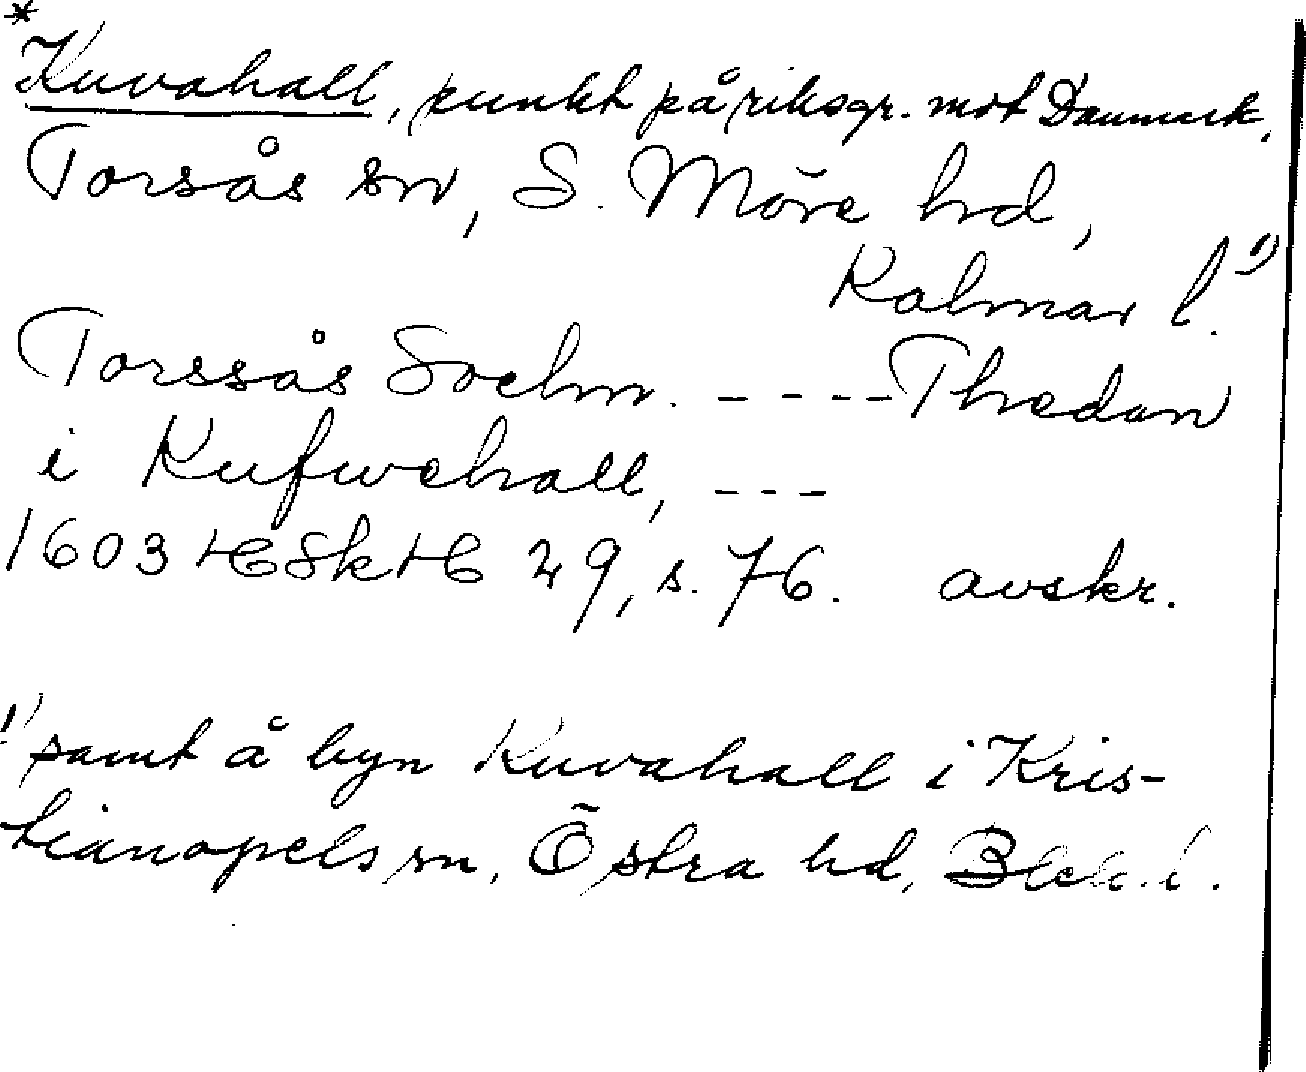 *
Kuvahall, punkt på riksgr. mot Danmark.
Torsås sn, S. Möre hd,
Kalmar l. 1)
Torssås Sochn. ---- Thedan
i Kufwehall, ---
1603 HSkH 29, s. 76. avskr.
1) samt å byn Kuvahall i Kris-
tianopels sn, Östra hd, Blek. l.